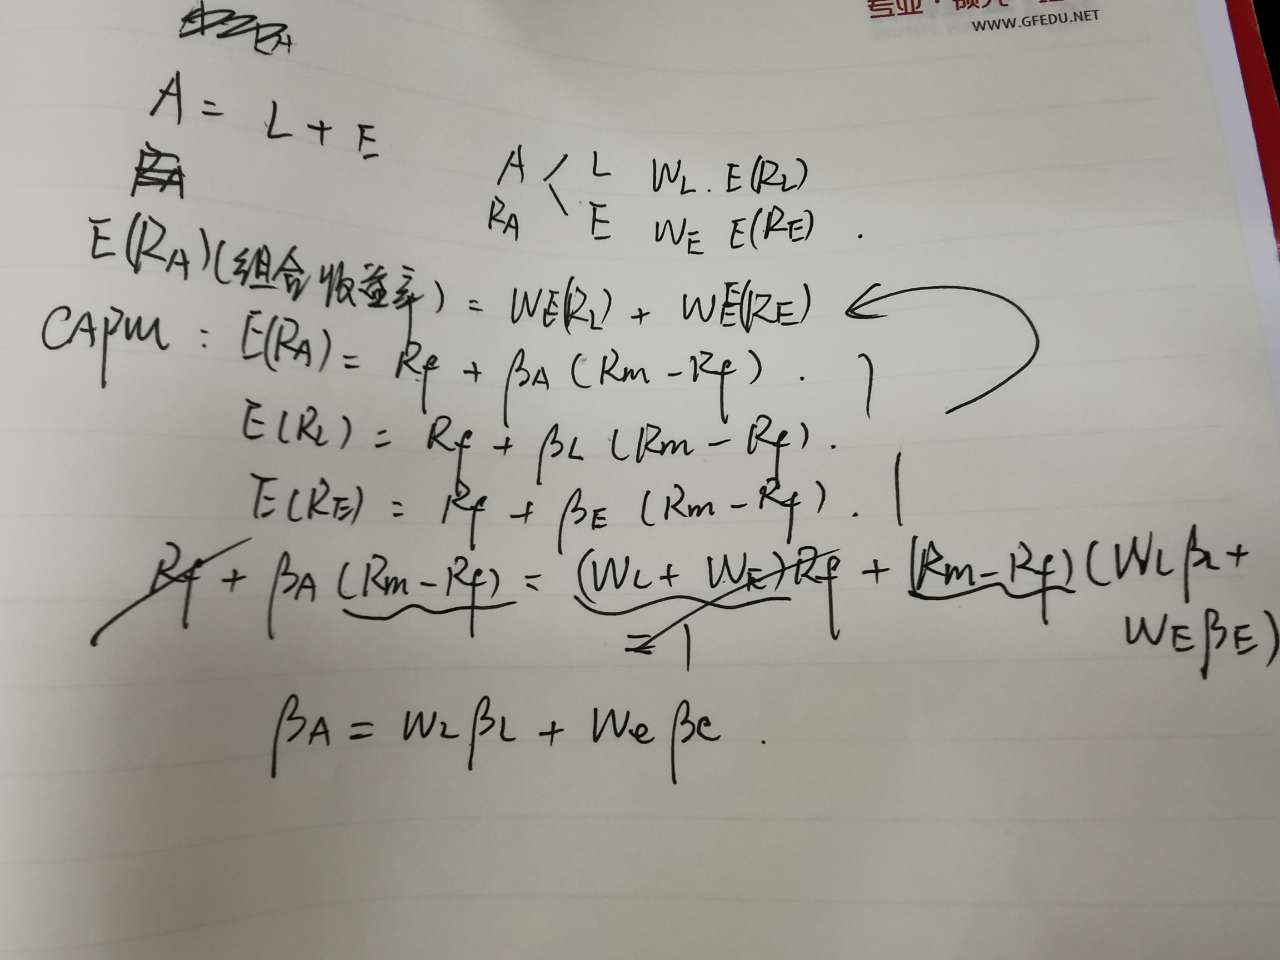 专业·
WWW.GFEDU.NET
EA
A = L + E
RA
A L WL. E(RL)
RA E WE E(RE) .
E(RA)(组合收益率) = WE(RL) + WE(RE)
CAPM : E(RA) = Rf + βA (Rm - Rf) .
E(RL) = Rf + βL (Rm - Rf) .
E(RE) = Rf + βE (Rm - Rf) .
Rf + βA (Rm - Rf) = (WL + WE)Rf + (Rm - Rf)(WLβL +
= 1
WEβE)
βA = WLβL + Weβe .